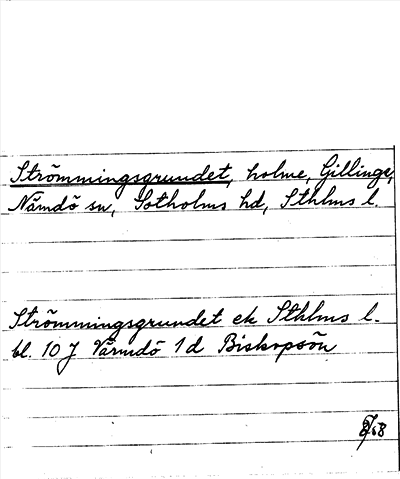 Strömmingsgrundet, holme, Gillinge,
Nämdö sn, Sotholms hd, Sthlms l.
Strömmingsgrundet ek Sthlms l.
bl. 10 J Värmdö 1 d Biskopsön